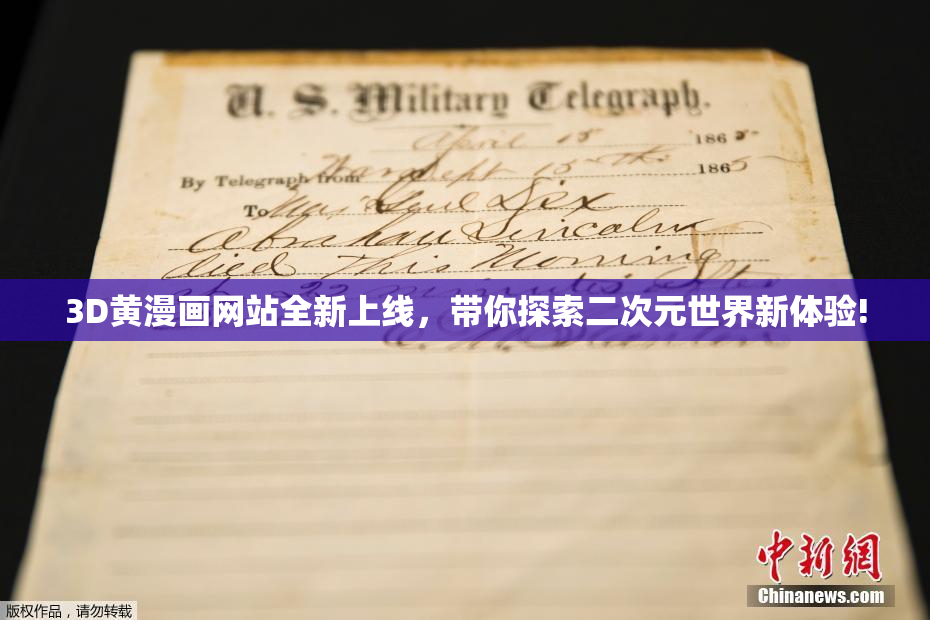 U. S. Military Telegraph.
April 15 1865
By Telegraph from War Dept 15th 1865
To Maj Genl Dix
Abraham Lincoln
died This Morning
at 22 minutes after
3D黄漫画网站全新上线，带你探索二次元世界新体验!
E. M. Stanton
中新網
Chinanews.com
版权作品，请勿转载